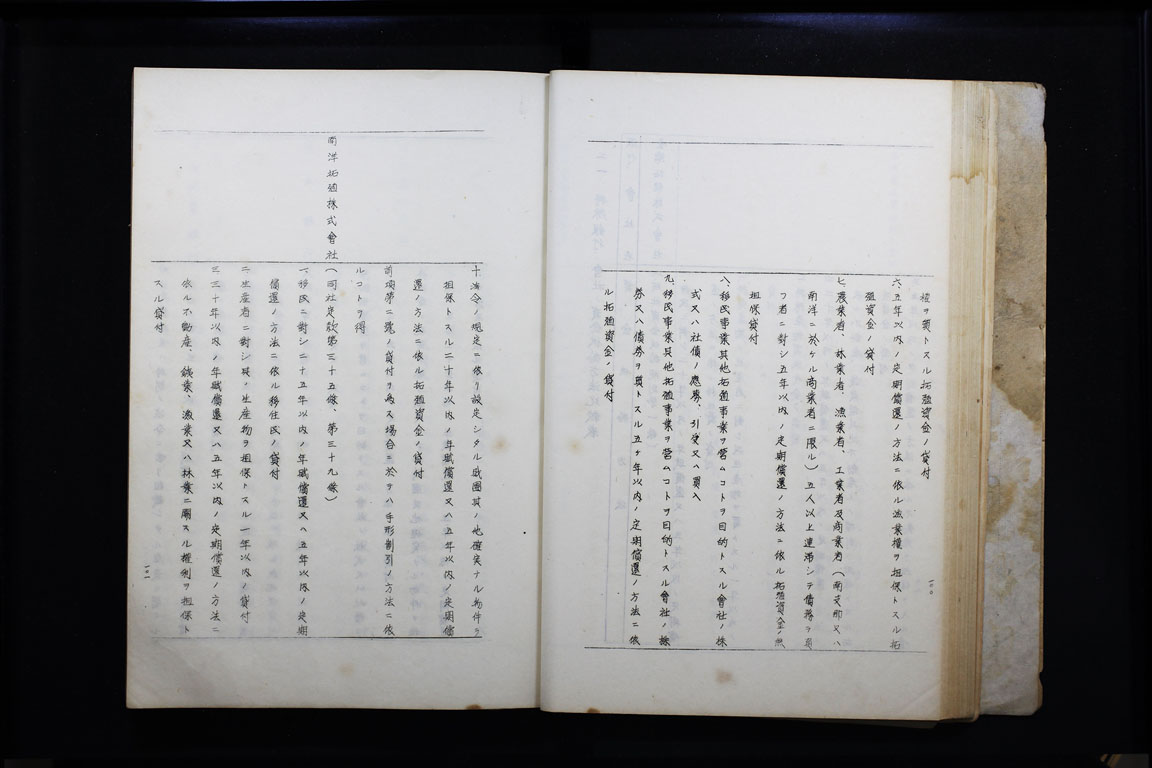 權ヲ質トスル拓殖資金ノ貸付
六、五年以内ノ定期償還ノ方法ニ依ル漁業權ヲ担保トスル拓
殖資金ノ貸付
七、農業者、林業者、漁業者、工業者及商業者(南支那又ハ
南洋ニ於ケル商業者ニ限ル)五人以上連帯シテ債務ヲ負
フ者ニ對シ五年以内ノ定期償還ノ方法ニ依ル拓殖資金ノ無
担保貸付
八、移民事業其他拓殖事業ヲ営ムコトヲ目的トスル會社ノ株
式又ハ社債ノ應募、引受又ハ買入
九、移民事業其他拓殖事業ヲ営ムコトヲ目的トスル會社ノ株
券又ハ債券ヲ質トスル五ヶ年以内ノ定期償還ノ方法ニ依
ル拓殖資金ノ貸付
一〇〇
十、法令ノ規定ニ依リ設定シタル財團其ノ他確実ナル物件ヲ
担保トスル二十年以内ノ年賦償還又ハ五年以内ノ定期償
還ノ方法ニ依ル拓殖資金ノ貸付
前項第二號ノ貸付ヲ為ス場合ニ於テハ手形割引ノ方法ニ依
ルコトヲ得
南洋拓殖株式會社
(同社定款第三十五條、第三十九條)
一、移民ニ對シ二十五年以内ノ年賦償還又ハ五年以内ノ定期
償還ノ方法ニ依ル移住民ノ貸付
二、生産者ニ對シ其ノ生産物ヲ担保トスル一年以内ノ貸付
三、三十年以内ノ年賦償還又ハ五年以内ノ定期償還ノ方法ニ
依ル不動産、鑛業、漁業又ハ林業ニ關スル權利ヲ担保ト
スル貸付
一〇一